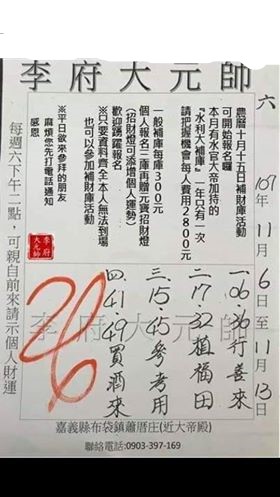 李府大元帥
六
107年11月6日至11月13日
農曆十月十五日補財庫活動
可開始報名囉
本月有水官大帝加持的
『水利大補庫』一年只有一次
請把握機會每人費用2800元
一般補庫每庫300元
個人報名三庫再贈元寶招財燈
(招財燈可添增個人運勢)
歡迎踴躍報名
※只要資料齊全本人無法到場
也可以參加補財庫活動
※平日欲來參拜的朋友
麻煩您先打電話通知
感恩
李府
大元帥
一.06.36行善來
二.17.32植福田
三.15.45參考用
四.41.49買酒來
26
李府大元帥
每週六下午二點，可親自前來請示個人財運
嘉義縣布袋鎮蕭厝庄(近大帝殿)
聯絡電話:0903-397-169